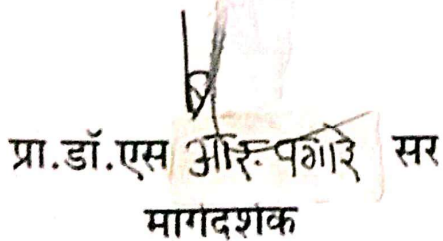 प्रा.डॉ.एस आर. पगारे सर
मार्गदर्शक